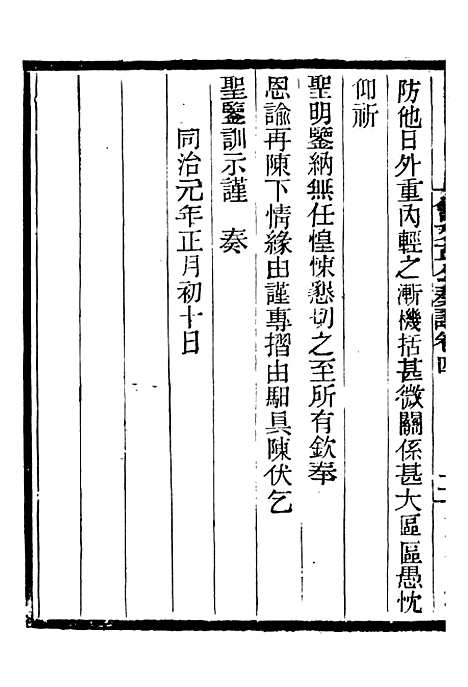 防他日外重內輕之漸機括甚微關係甚大區區愚忱
仰祈
聖明鑒納無任惶悚懇切之至所有欽奉
恩諭再陳下情緣由謹專摺由馹具陳伏乞
聖鑒訓示謹 奏
同治元年正月初十日